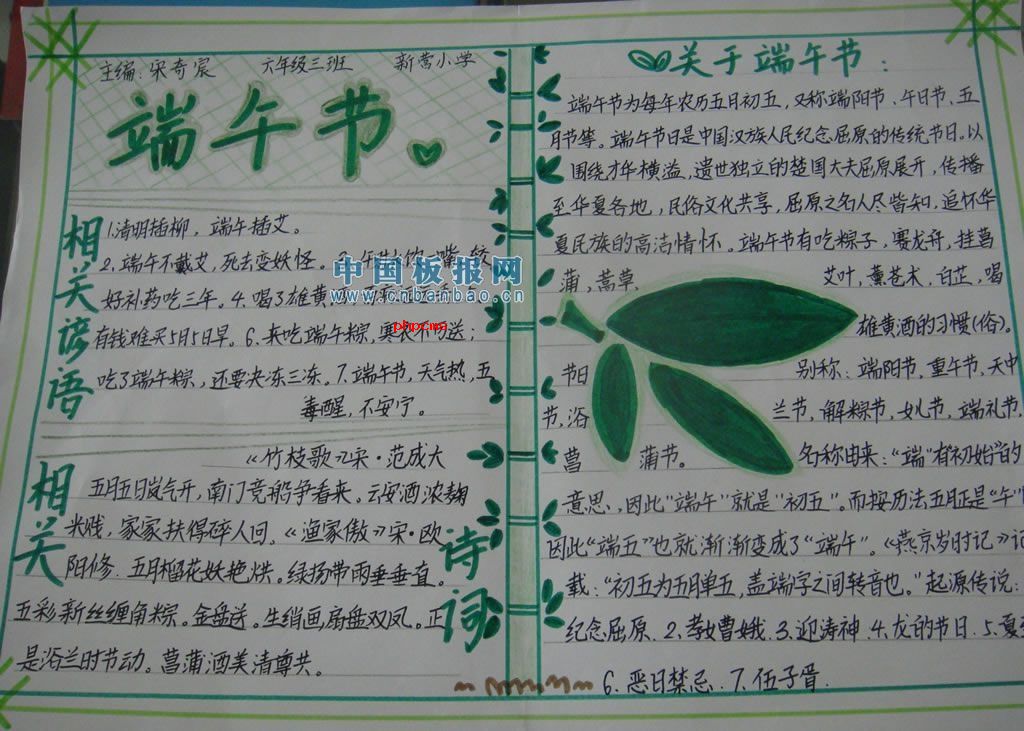 主编:宋奇宸 六年级三班 新营小学
端午节
相关谚语
1.清明插柳，端午插艾。
2.端午不戴艾，死去变妖怪。
好补药吃三年。4.喝了雄黄
有钱难买5月5日早。6.未吃端午粽，寒衣不可送；
吃了端午粽，还要冻三冻。7.端午节，天气热，五
毒醒，不安宁。
中国板报网
www.cnbanbao.cn
phpcms
相关诗词
《竹枝歌》宋·范成大
五月五日岚气开，南门竞船争看来。云安酒浓麹
米贱，家家扶得碎人回。《渔家傲》宋·欧
阳修.五月榴花妖艳烘。绿扬带雨垂垂直。
五彩新丝缠角粽。金盘送。生绡画扇盘双凤。正
是浴兰时节动。菖蒲酒美清尊共。
关于端午节：
端午节为每年农历五月初五，又称端阳节、午日节、五
月节等。端午节日是中国汉族人民纪念屈原的传统节日。以
围绕才华横溢，遗世独立的楚国大夫屈原展开，传播
至华夏各地，民俗文化共享，屈原之名人尽皆知，追怀华
夏民族的高洁情怀。端午节有吃粽子，赛龙舟，挂菖
蒲，蒿草，艾叶，薰苍术，白芷，喝
雄黄酒的习惯(俗)。
别称：端阳节，重午节，天中
节日
节，浴兰节，解粽节，女儿节，端礼节，
菖蒲节。名称由来：“端”有初始的
意思，因此“端午”就是“初五”。而按历法五月正是“午”
因此“端五”也就渐渐变成了“端午”。《燕京岁时记》记
载：“初五为五月单五，盖端字之间转音也。”起源传说：
纪念屈原.2.孝女曹娥.3.迎涛神.4.龙的节日.5.夏至
6.恶日禁忌.7.伍子胥.